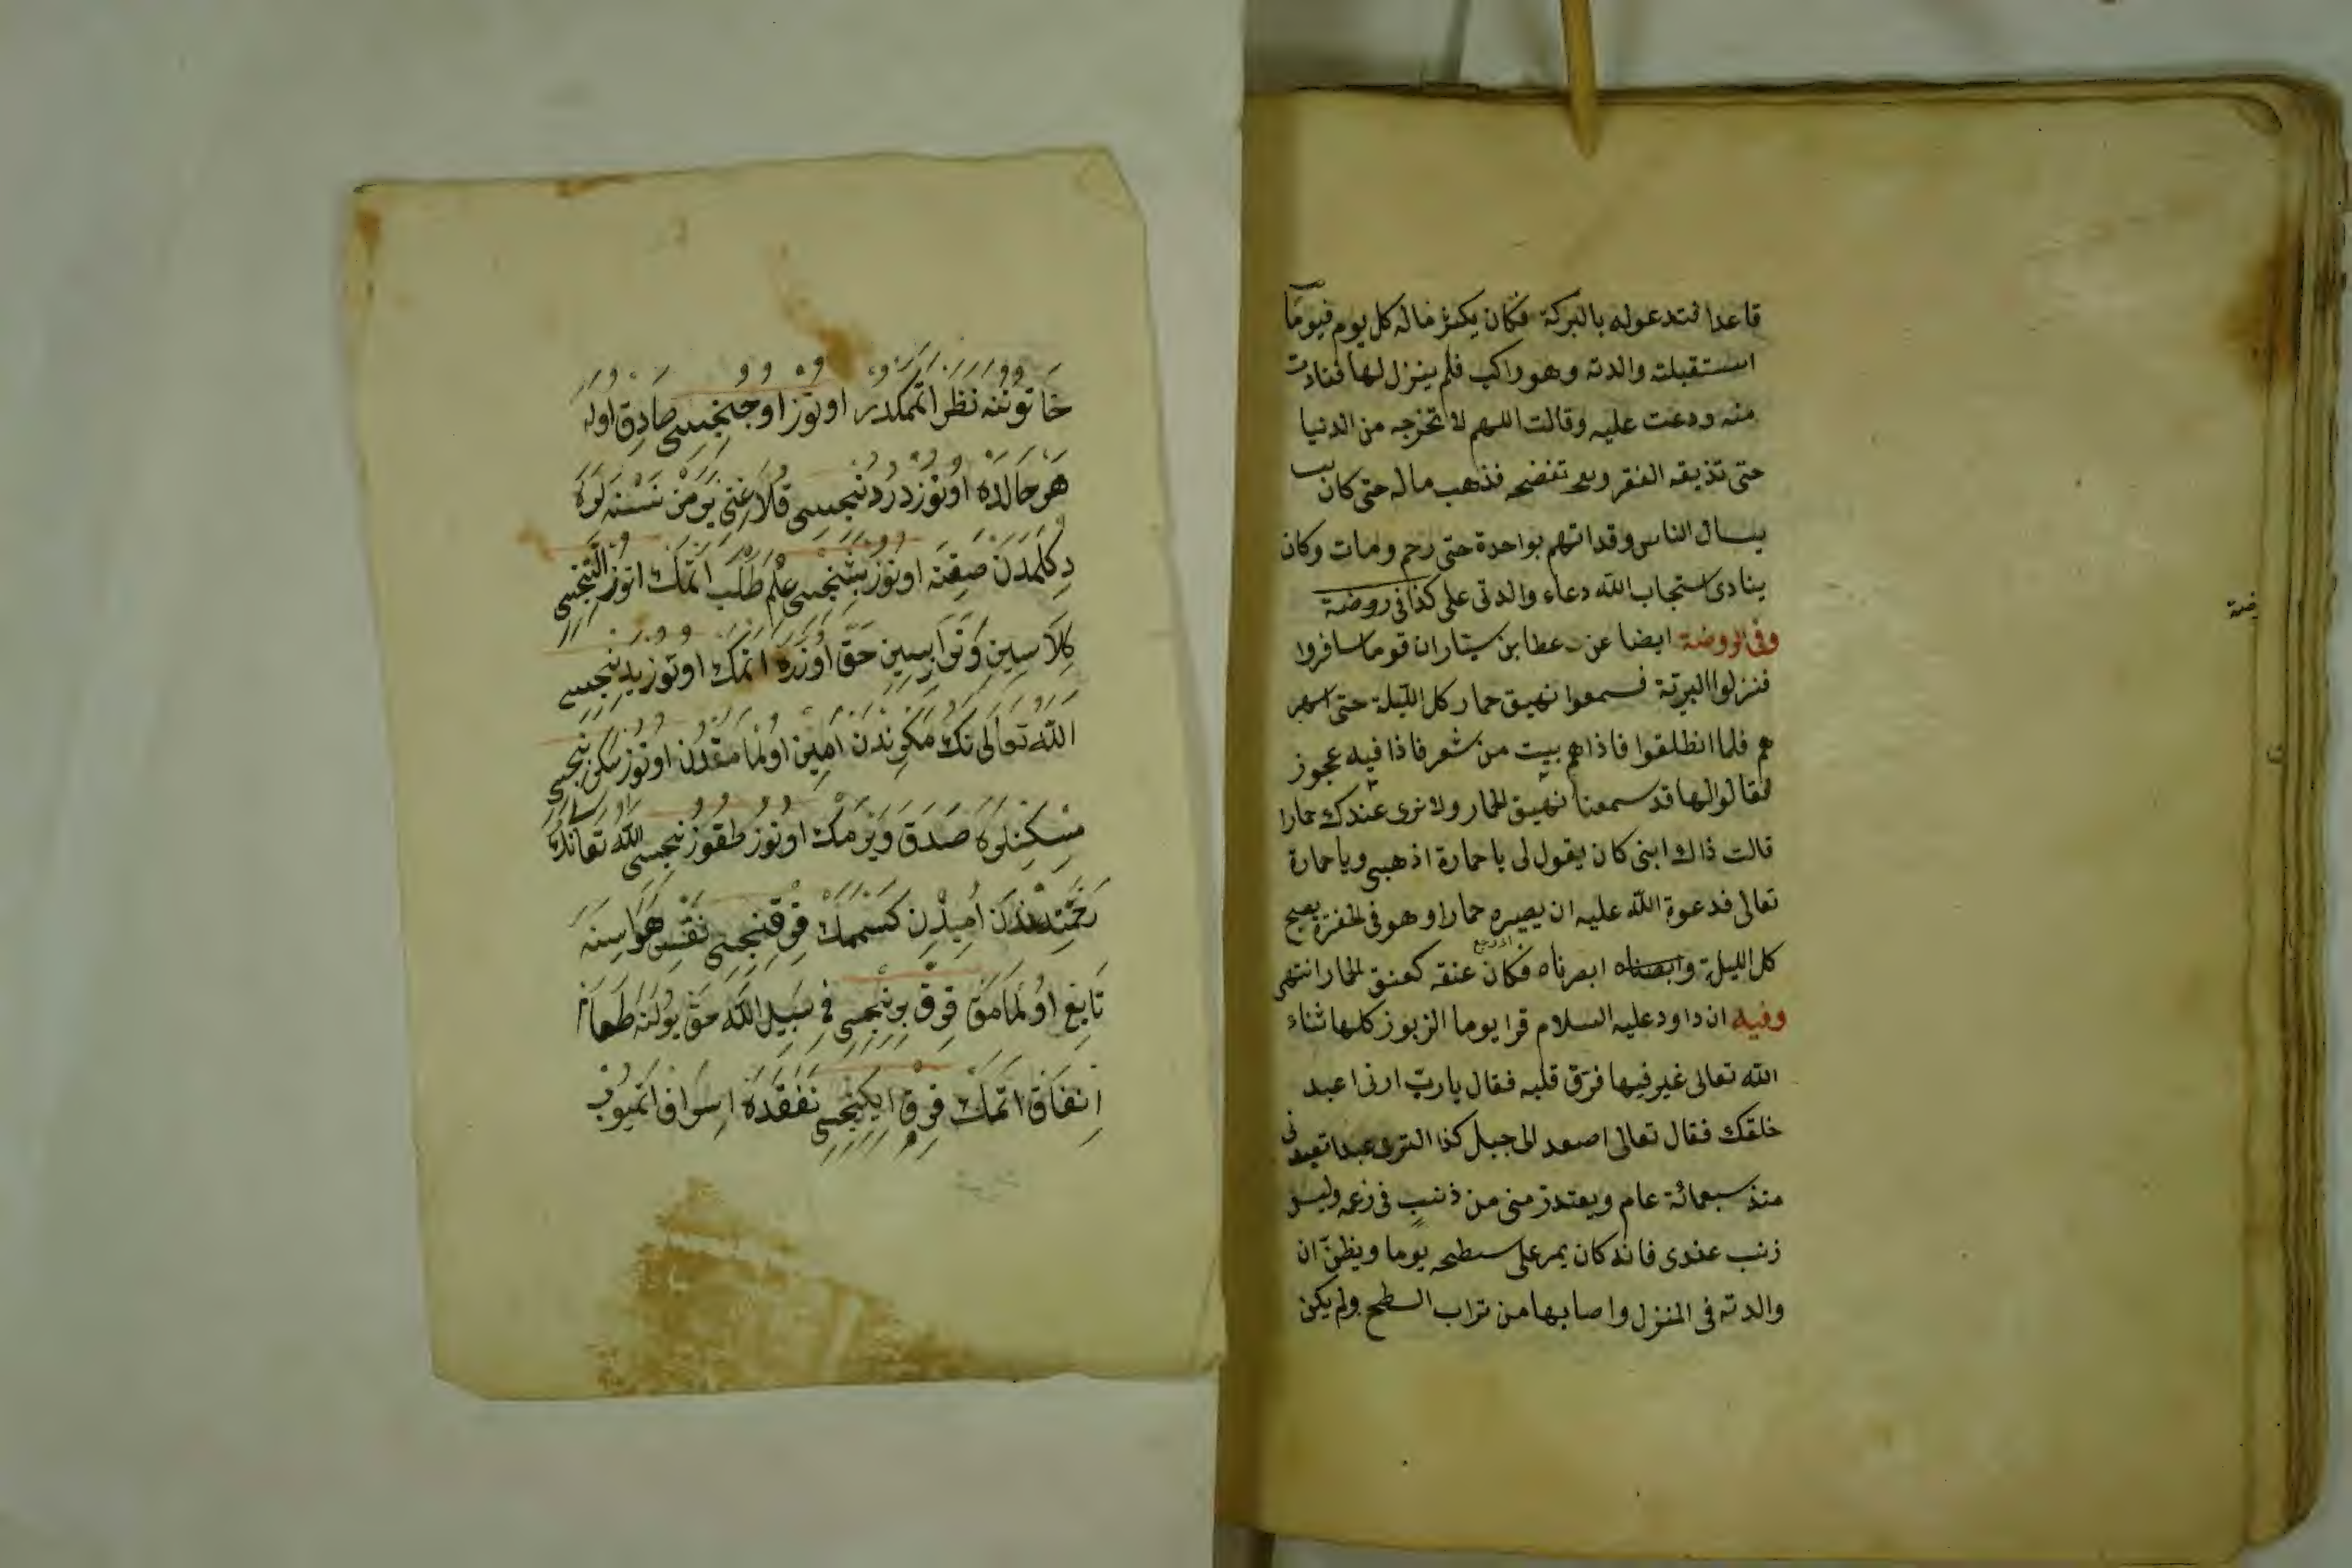 قاعدا فتدعوله بالبركة فكان يكثر ماله كل يوم فيوما
استقبلته والدته وهو راكب فلم ينزل لها فنادت
منه ودعت عليه وقالت اللهم لا تخرجه من الدنيا
حتى تذيقه الفقر وتفضحه فذهب ماله حتى كان
يسال الناس وقد اتهم بواحدة حتى رجم ومات وكان
ينادى استجاب الله دعاء والدتى على كذا فى روضة
وفى الروضة ايضا عن عطا بن ستار ان قوما سافروا
فنزلوا البرية فسمعوا نهيق حمار كل الليلة حتى اسهر
هم فلما انطلقوا فاذا هم بيت من شعر فاذا فيه عجوز
فقالوا لها قد سمعنا نهيق الحمار ولا نرى عندك حمارا
قالت ذاك ابنى كان يقول لى يا حمارة اذهبى ويا حمارة
تعالى فدعوة الله عليه ان يصيره حمارا وهو فى الحفرة يصيح
كل الليلة وابصناه ابصرناه فكان عنقه كعنق الحمار انتهى
وفيه ان داود عليه السلام قرا يوما الزبور كلها ثناء
الله تعالى غير فيها فرق قلبه فقال يارب ارنى اعبد
خلقك فقال تعالى اصعد الى جبل كذا لترى عبدا تعبدنى
منذ سبعمائة عام ويعتذر منى من ذنب فى زعمه وليس
ذنب عندى فانه كان يمر على سطحه يوما ويظن ان
والدته فى المنزل واصابها من تراب السطح ولم يكن
خَاتُونُنَه نَظَرْ اتْمَكْدِر اوتوز اوچنجیسی صَادِقْ اوله
هَرْ حَالْدَه اوتُوزْ دردنجیسی
دكلمدن صقنه اوتوز بشنجیسی عِلْم طَلَب اتمَك اتوز التنجیسی
حَقْ اوزره اتمك اوتوز یدنجیسی
اللّٰه تعالى نك مكرندن امین اولمامقدن اوتوز سكزنجیسی
مسكینلره صَدَقَ ویرمك اوتوز طقوزنجیسی اللّٰه تعالنك
رحمتندن امیدن كسممك قرقنجیسی نفس هواسنه
تابع اولمامق قرق برنجیسی فى سبیل اللّٰه حق یولنه طعام
انفاق اتمك قرق ایكنجیسی نفقده اسراف اتمیوب